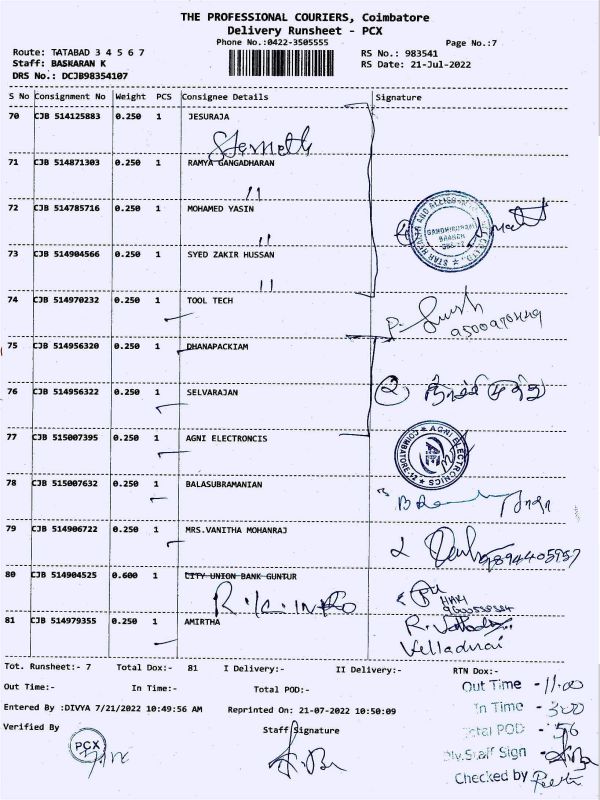 THE PROFESSIONAL COURIERS, Coimbatore
Delivery Runsheet - PCX
Phone No.:0422-3505555
Page No.:7
Route: TATABAD 3 4 5 6 7
RS No.: 983541
Staff: BASKARAN K
RS Date: 21-Jul-2022
DRS No.: DCJB98354107
S No Consignment No Weight PCS Consignee Details Signature
70 CJB 514125883 0.250 1 JESURAJA
71 CJB 514871303 0.250 1 RAMYA GANGADHARAN
72 CJB 514785716 0.250 1 MOHAMED YASIN
73 CJB 514904566 0.250 1 SYED ZAKIR HUSSAN
74 CJB 514970232 0.250 1 TOOL TECH
75 CJB 514956320 0.250 1 DHANAPACKIAM
76 CJB 514956322 0.250 1 SELVARAJAN
77 CJB 515007395 0.250 1 AGNI ELECTRONCIS
AGNI ELECTRONICS
78 CJB 515007632 0.250 1 BALASUBRAMANIAN
79 CJB 514906722 0.250 1 MRS.VANITHA MOHANRAJ
80 CJB 514904525 0.600 1 CITY UNION BANK GUNTUR
81 CJB 514979355 0.250 1 AMIRTHA
Velladurai
Tot. Runsheet:- 7 Total Dox:- 81 I Delivery:- II Delivery:- RTN Dox:-
Out Time:- In Time:- Total POD:-
Out Time - 11.00
Entered By :DIVYA 7/21/2022 10:49:56 AM Reprinted On: 21-07-2022 10:50:09
In Time - 3.00
Verified By Staff Signature
Total POD - 56
PCX
Div.Staff Sign -
Checked by